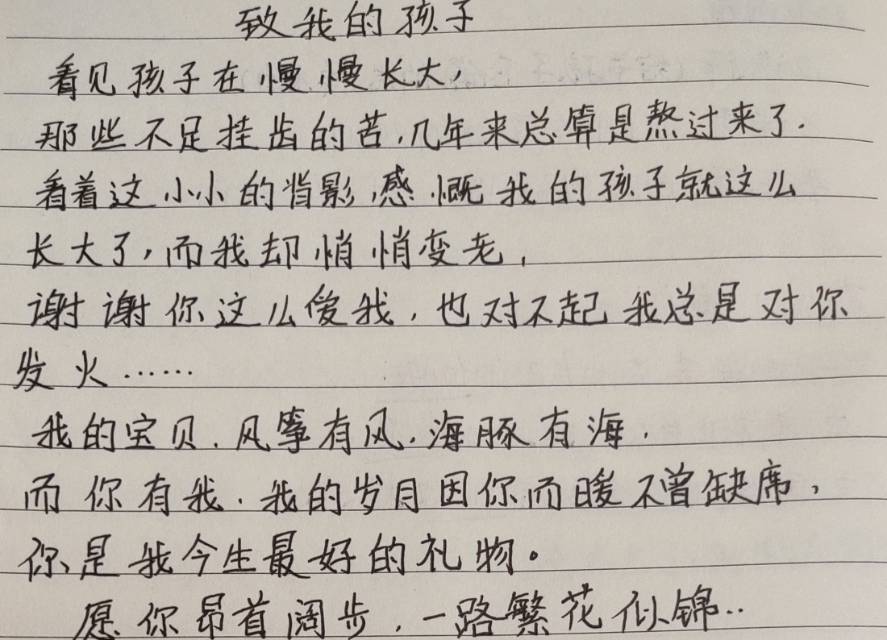 致我的孩子
看见孩子在慢慢长大,
那些不足挂齿的苦,几年来总算是熬过来了.
看着这小小的背影,感慨我的孩子就这么
长大了,而我却悄悄变老,
谢谢你这么爱我,也对不起我总是对你
发火……
我的宝贝.风筝有风.海豚有海.
而你有我.我的岁月因你而暖不曾缺席,
你是我今生最好的礼物。
愿你昂首阔步.一路繁花似锦..